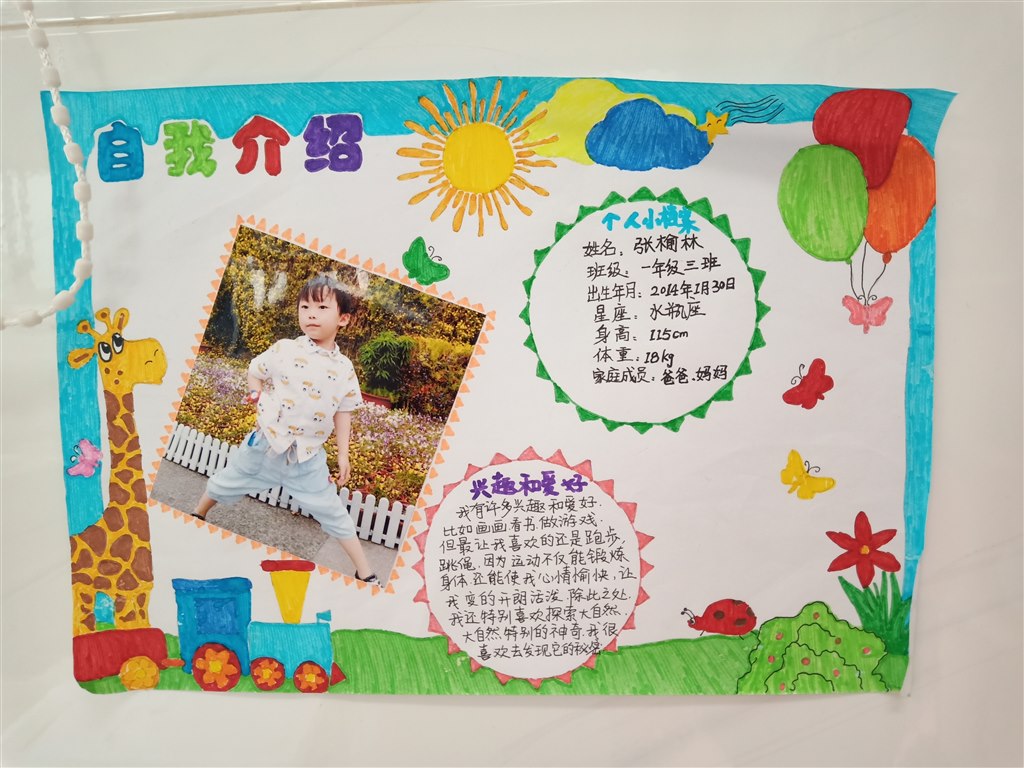 自我介绍
个人小档案
姓名：张榆林
班级：一年级三班
出生年月：2014年1月30日
星座：水瓶座
身高：115cm
体重：18kg
家庭成员：爸爸、妈妈
兴趣和爱好
我有许多兴趣和爱好.
比如画画看书.做游戏.
但最让我喜欢的还是跑步,
跳绳,因为运动不仅能锻炼
身体还能使我心情愉快,让
我变的开朗活泼.除此之处
我还特别喜欢探索大自然,
大自然特别的神奇.我很
喜欢去发现它的秘密